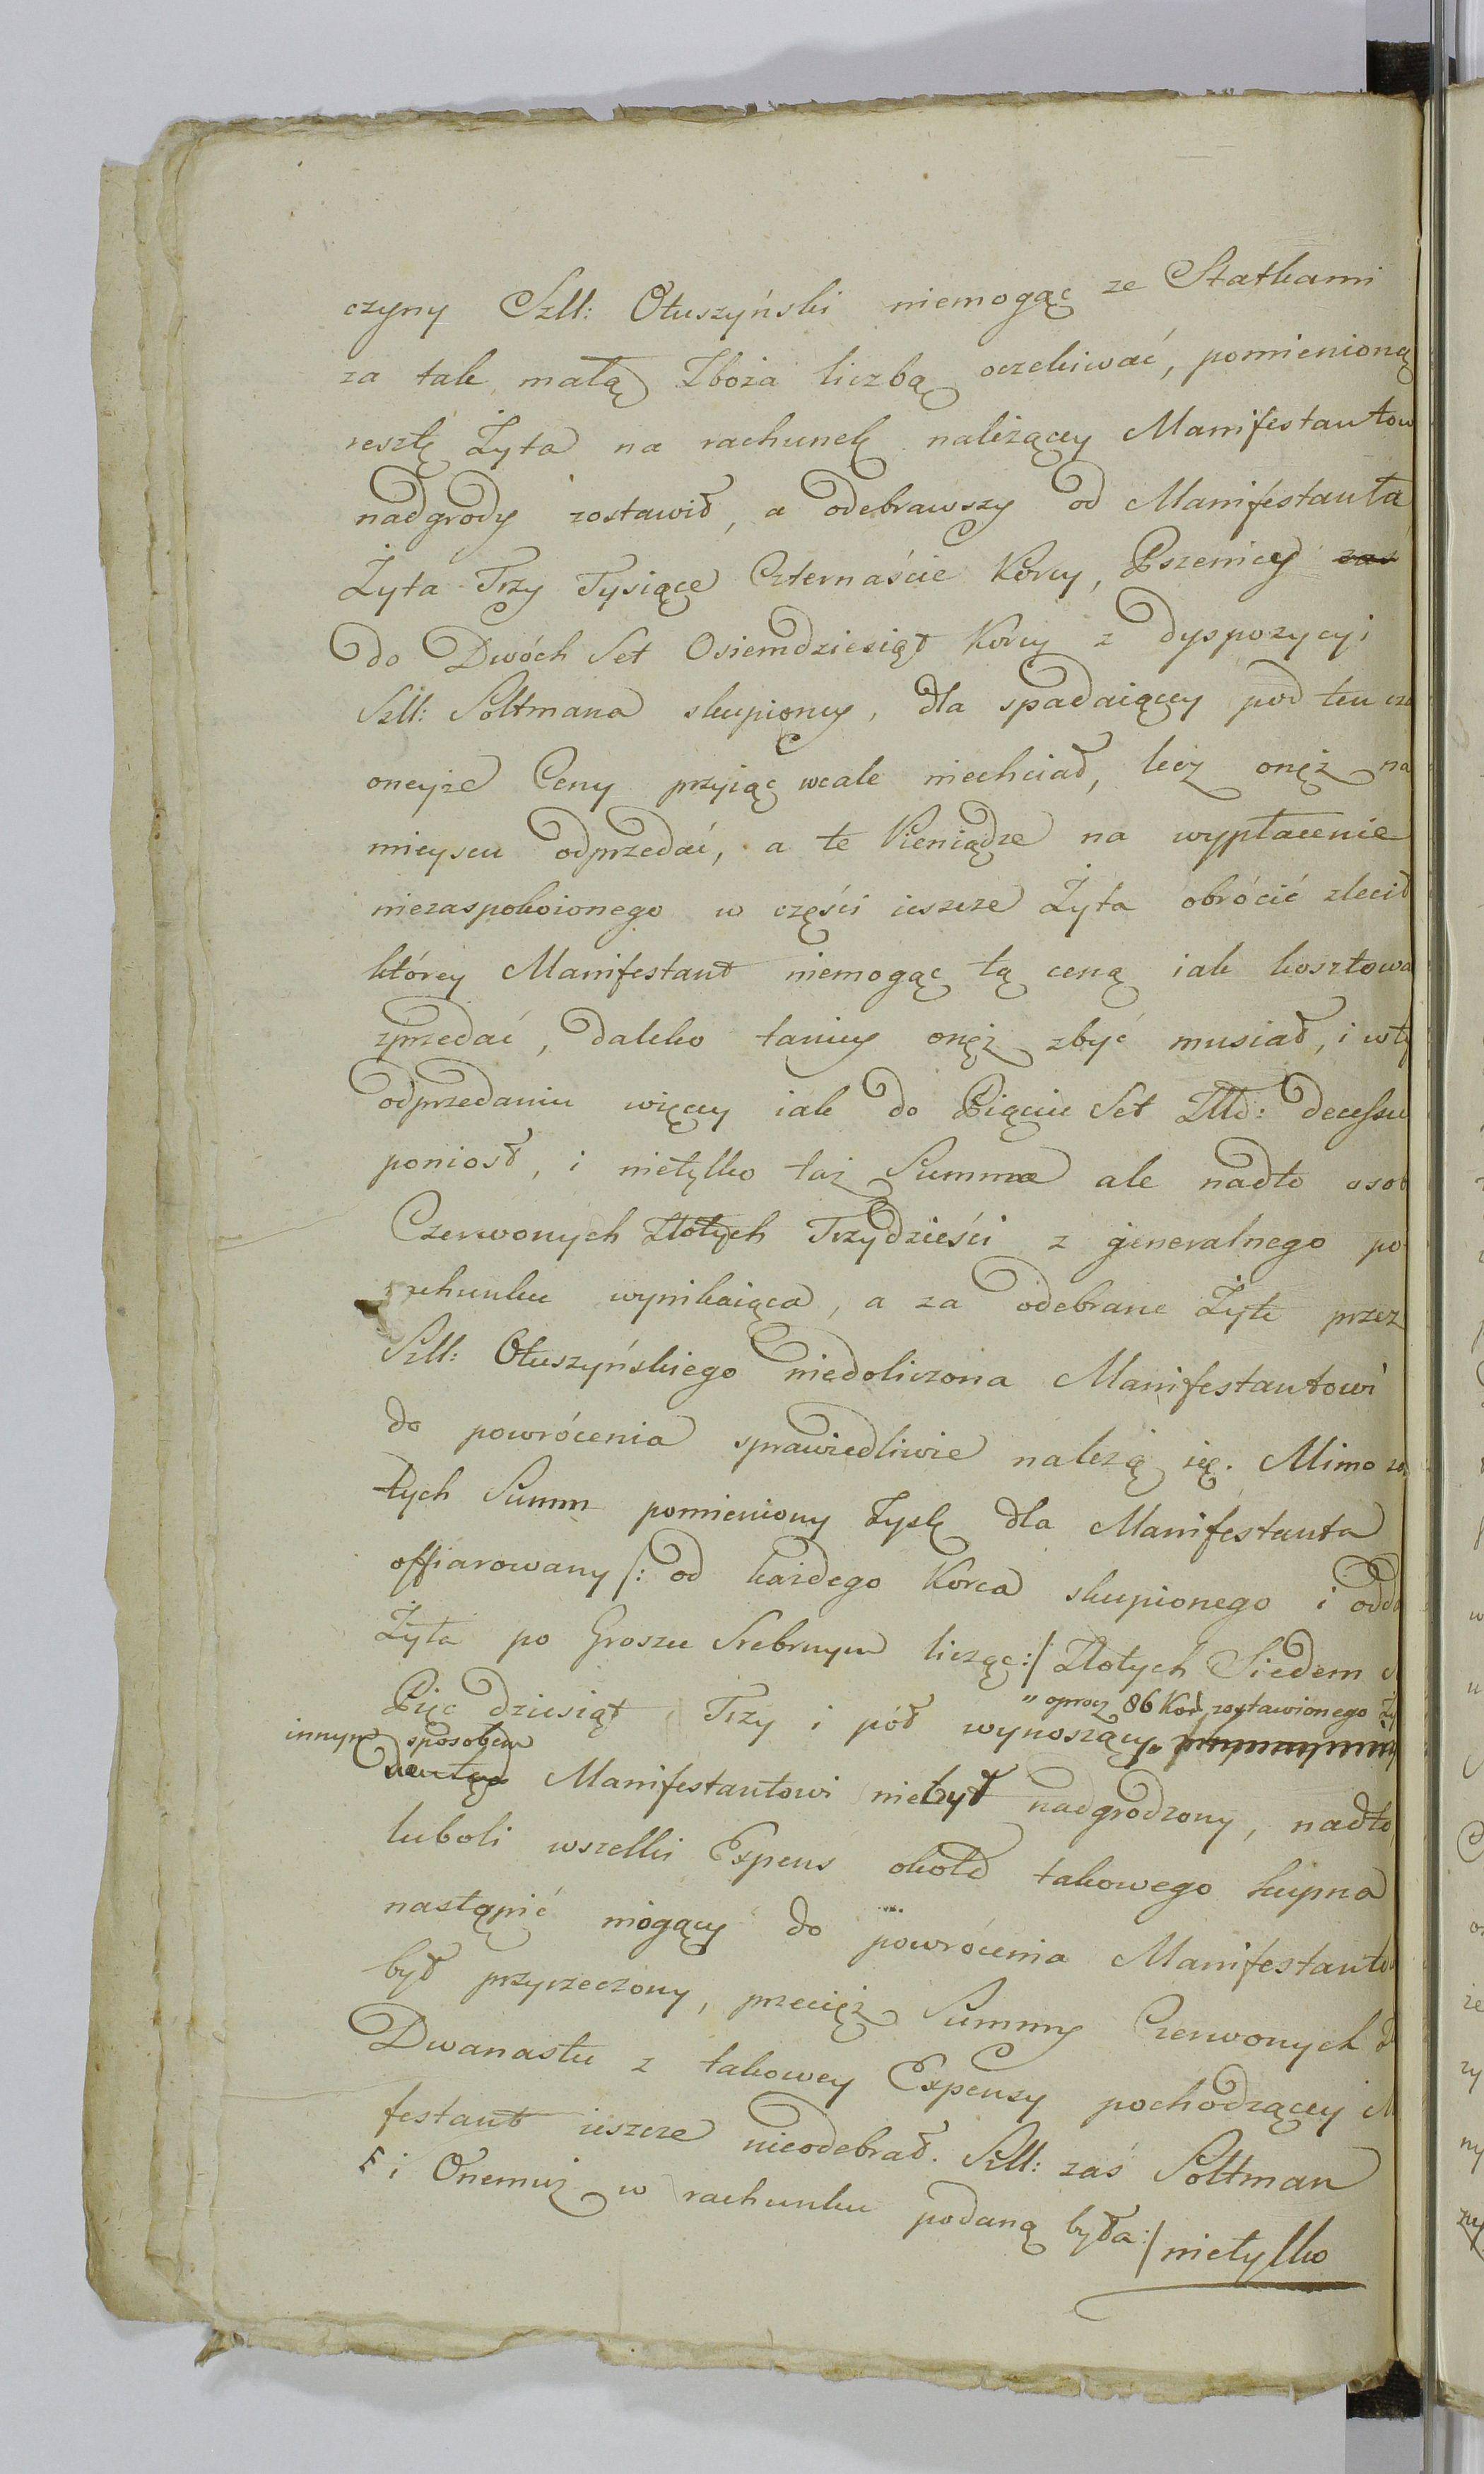 czyny Szll: Ołuszyński niemogąc ze Statkami
za tak małą Zboża liczbą oczekiwać, pomienioną
resztę Żyta na rachunek należącey Manifestantow
nadgrody zostawił, a odebrawszy od Manifestanta
Żyta Trzy Tysiące Czternaście Korcy, Pszenicy zaś
do Dwóch Set Osiemdziesiąt Korcy z dyspozycyi
Szll: Soltmana skupioney, dla spadaiącey pod ten cza
oneyże Ceny przyiąć wcale niechciał, lecz onęż na
mieyscu odprzedać, a te Pieniądze na wypłacenie
niezaspokoionego w części ieszcze Żyta obrócić zlecił
którey Manifestant niemogąc tą ceną iak kosztowa
zprzedać, daleko taniey onęż zbyć musiał, i w ty
odprzedaniu więcey iak do Pięciu Set Złł: decessu
poniosł, i nietylko taż Summa ale nadto osob
Czerwonych Złotych Trzydzieści z generalnego po
rachunku wynikaiąca, a za odebrane Żyto przez
Szll: Ołuszyńskiego niedoliczona Manifestantowi
do powrócenia sprawiedliwie należą się. Mimo za
tych Summ pomieniony Zysk dla Manifestanta
offiarowany /: od każdego Korca skupionego i odda
Żyta po Groszu Srebrnym licząc :/ Złotych Siedem s
Pięc dziesiąt Trzy i pół wynoszący
" oprocz 86 Kor. zostawionego Ży
innym sposobem
Manifestantowi niebył nadgrodzony, nadto
luboli wszelki Expens około takowego kupna
nastąpić mogący do powrócenia Manifestanto
był przyrzeczony, przecięż Summy Czerwonych Z
Dwanastu z takowey Expensy pochodzącey M
festant ieszcze nieodebrał. Szll: zaś Soltman
i Onemuż w rachunku podaną była :/ nietylko